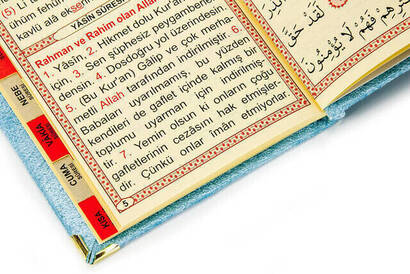 (5) Li
ühüm
kavlü alâ
YÂSİN SÛRESİ
Rahman ve Rahim olan Allah
1. Yâsin. 2. Hikmet dolu Kur'an
hakkı için. 3. Sen şüphesiz peygamberler
densin. 4. Dosdoğru yol üzerindesin.
5. (Bu Kur'an) Gâlip ve çok merha-
metli Allah tarafından indirilmiştir. 6.
Babaları uyarılmamış, bu yüzden
kendileri de gaflet içinde kalmış bir
toplumu uyarman için indirilmiş-
tir. 7. Yemin olsun ki onların çoğu
gafletlerinin cezasını hak etmişler-
dir. Çünkü onlar îmân etmiyorlar.
5
NEBE
SÛRESİ
VAKIA
CUMA
SÛRESİ
KISA